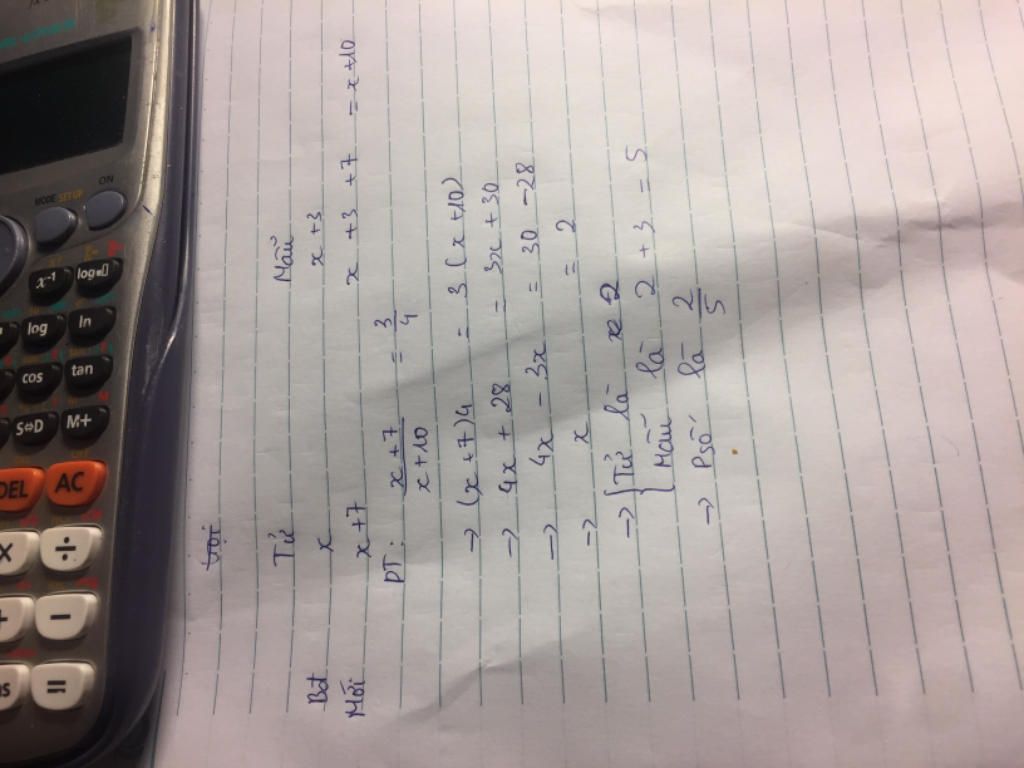 Tử Mẫu
Bđ x x+3
Mới x+7 x+3+7 = x+10
PT: \frac{x+7}{x+10} = \frac{3}{4}
→ (x+7)4 = 3(x+10)
→ 4x + 28 = 3x + 30
→ 4x - 3x = 30 - 28
→ x = 2
→ { Tử là 2
Mẫu là 2 + 3 = 5
→ Psố là \frac{2}{5}
MODE SETUP ON
x⁻¹ log
log ln
cos tan
S⇔D M+
DEL AC
× ÷
+ −
=